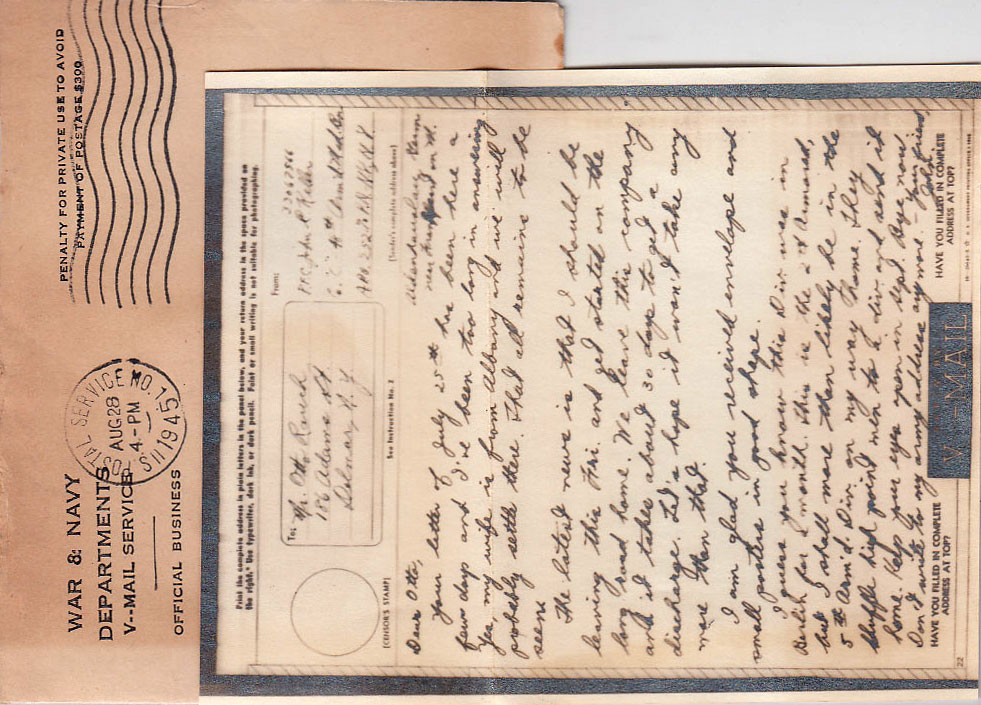 WAR & NAVY
DEPARTMENTS
V--MAIL SERVICE
OFFICIAL BUSINESS
POSTAL SERVICE NO. 1
AUG 28
4-PM
1945
PENALTY FOR PRIVATE USE TO AVOID
PAYMENT OF POSTAGE $300
Print the complete address in plain letters in the panel below, and your return address in the space provided on
the right. Use typewriter, dark ink, or dark pencil. Faint or small writing is not suitable for photographing.
To:
Mr. Otto Rauch
186 Adams St.
Delmar, N.Y.
From:
33062566
PFC John P. Keller
"C" 4th Armd Med. Bn.
(CENSOR'S STAMP)
See Instruction No. 2
(Sender's complete address above)
Dear Otto,
Your letter of July 25th has been here a
few days and I've been too long in answering
Yes, my wife is from Albany and we will
probably settle there. That all remains to be
seen.
The latest news is that I should be
leaving this Fri. and get started on the
long road home. We leave this company
and it takes about 30 days to get a
discharge. Let's hope it won't take any
more than that.
I am glad you received envelope and
small posters in good shape.
I guess you know this Div was in
Berlin for 2 month. This is the 2nd Armored,
but I shall more than likely be in the
5th Arm'd. Div. on my way home. They
shuffle high point men to a div and send it
home. Keep your eyes open in Sept. Bye now
Don't write to my army address anymore - Your friend,
John
HAVE YOU FILLED IN COMPLETE
ADDRESS AT TOP?
V-MAIL
HAVE YOU FILLED IN COMPLETE
ADDRESS AT TOP?
22